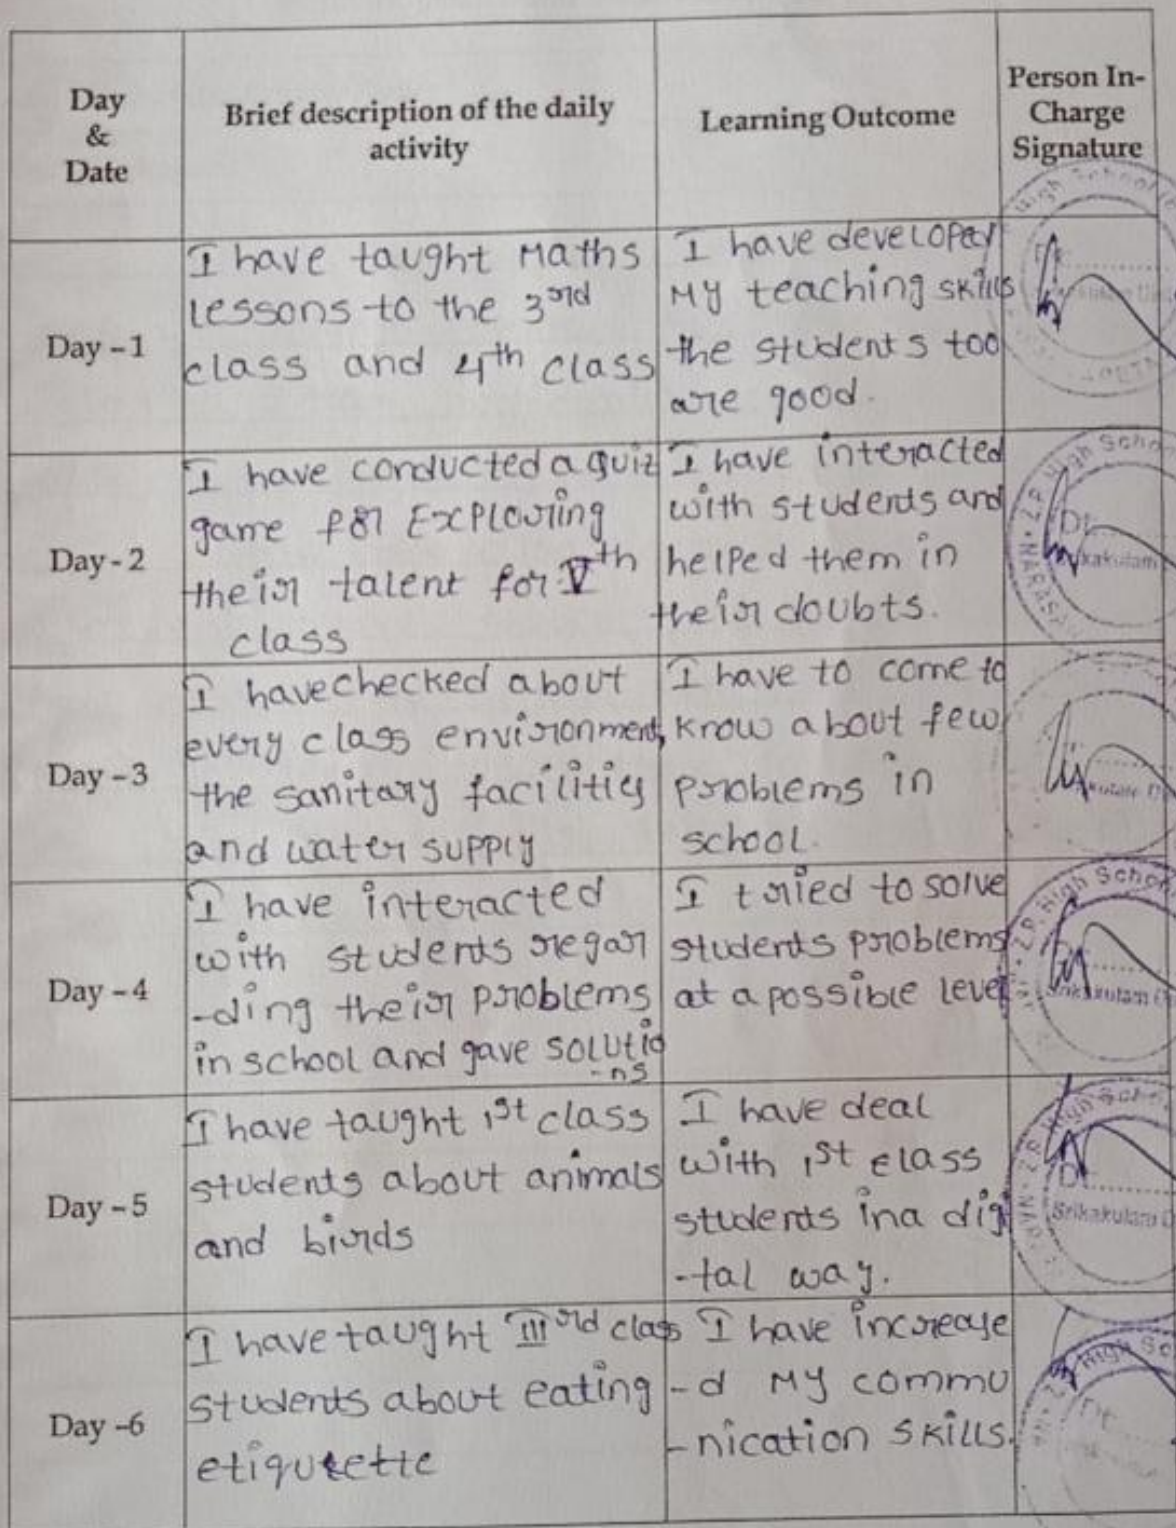 Day
&
Date
Brief description of the daily
activity
Learning Outcome
Person In-
Charge
Signature
Day - 1
I have taught Maths
lessons to the 3rd
class and 4th class
I have developed
My teaching skills
the students too
are good.
High School
Day - 2
I have conducted a quiz
game for Explouring
their talent for Vth
class
I have interacted
with students and
helped them in
their doubts.
Z.P. High Scho
Dt
Day - 3
I have checked about
every class environment,
the sanitary facilities
and water supply
I have to come to
know about few
problems in
school.
Day - 4
I have interacted
with students regar
-ding their problems
in school and gave solutio
-ns
I tried to solve
students problems
at a possible level
Z.P. High Schoo
Srikakulam
Day - 5
I have taught 1st class
students about animals
and birds
I have deal
with 1st class
students in a digi
-tal way.
Z.P. High Sch
Dt
Srikakulam D
Day -6
I have taught IIIrd class
students about eating
etiquette
I have increase
-d My commu
-nication skills.
High Sc
Dt